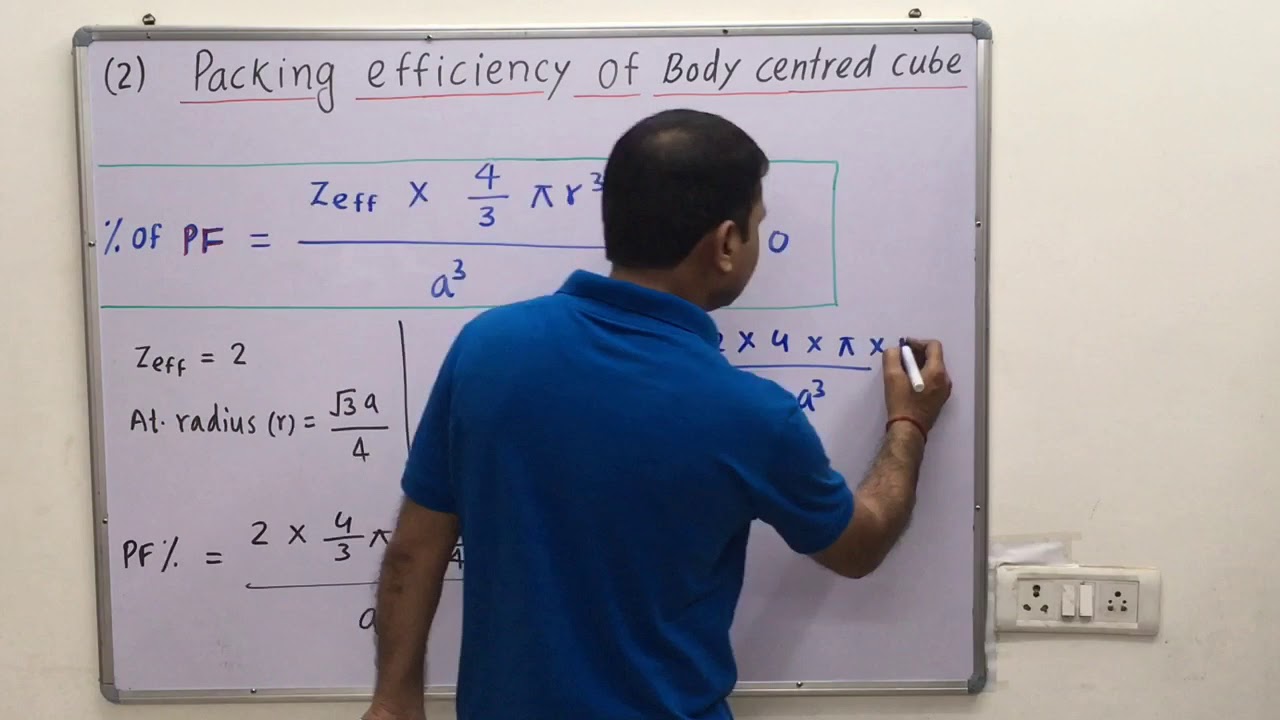 (2) Packing efficiency of Body centred cube
Zeff × 4/3 πr³
% of PF =
a³
0
Zeff = 2
At. radius (r) = √3 a / 4
× 4 × π ×
a³
PF % = 2 × 4/3 π
4
a